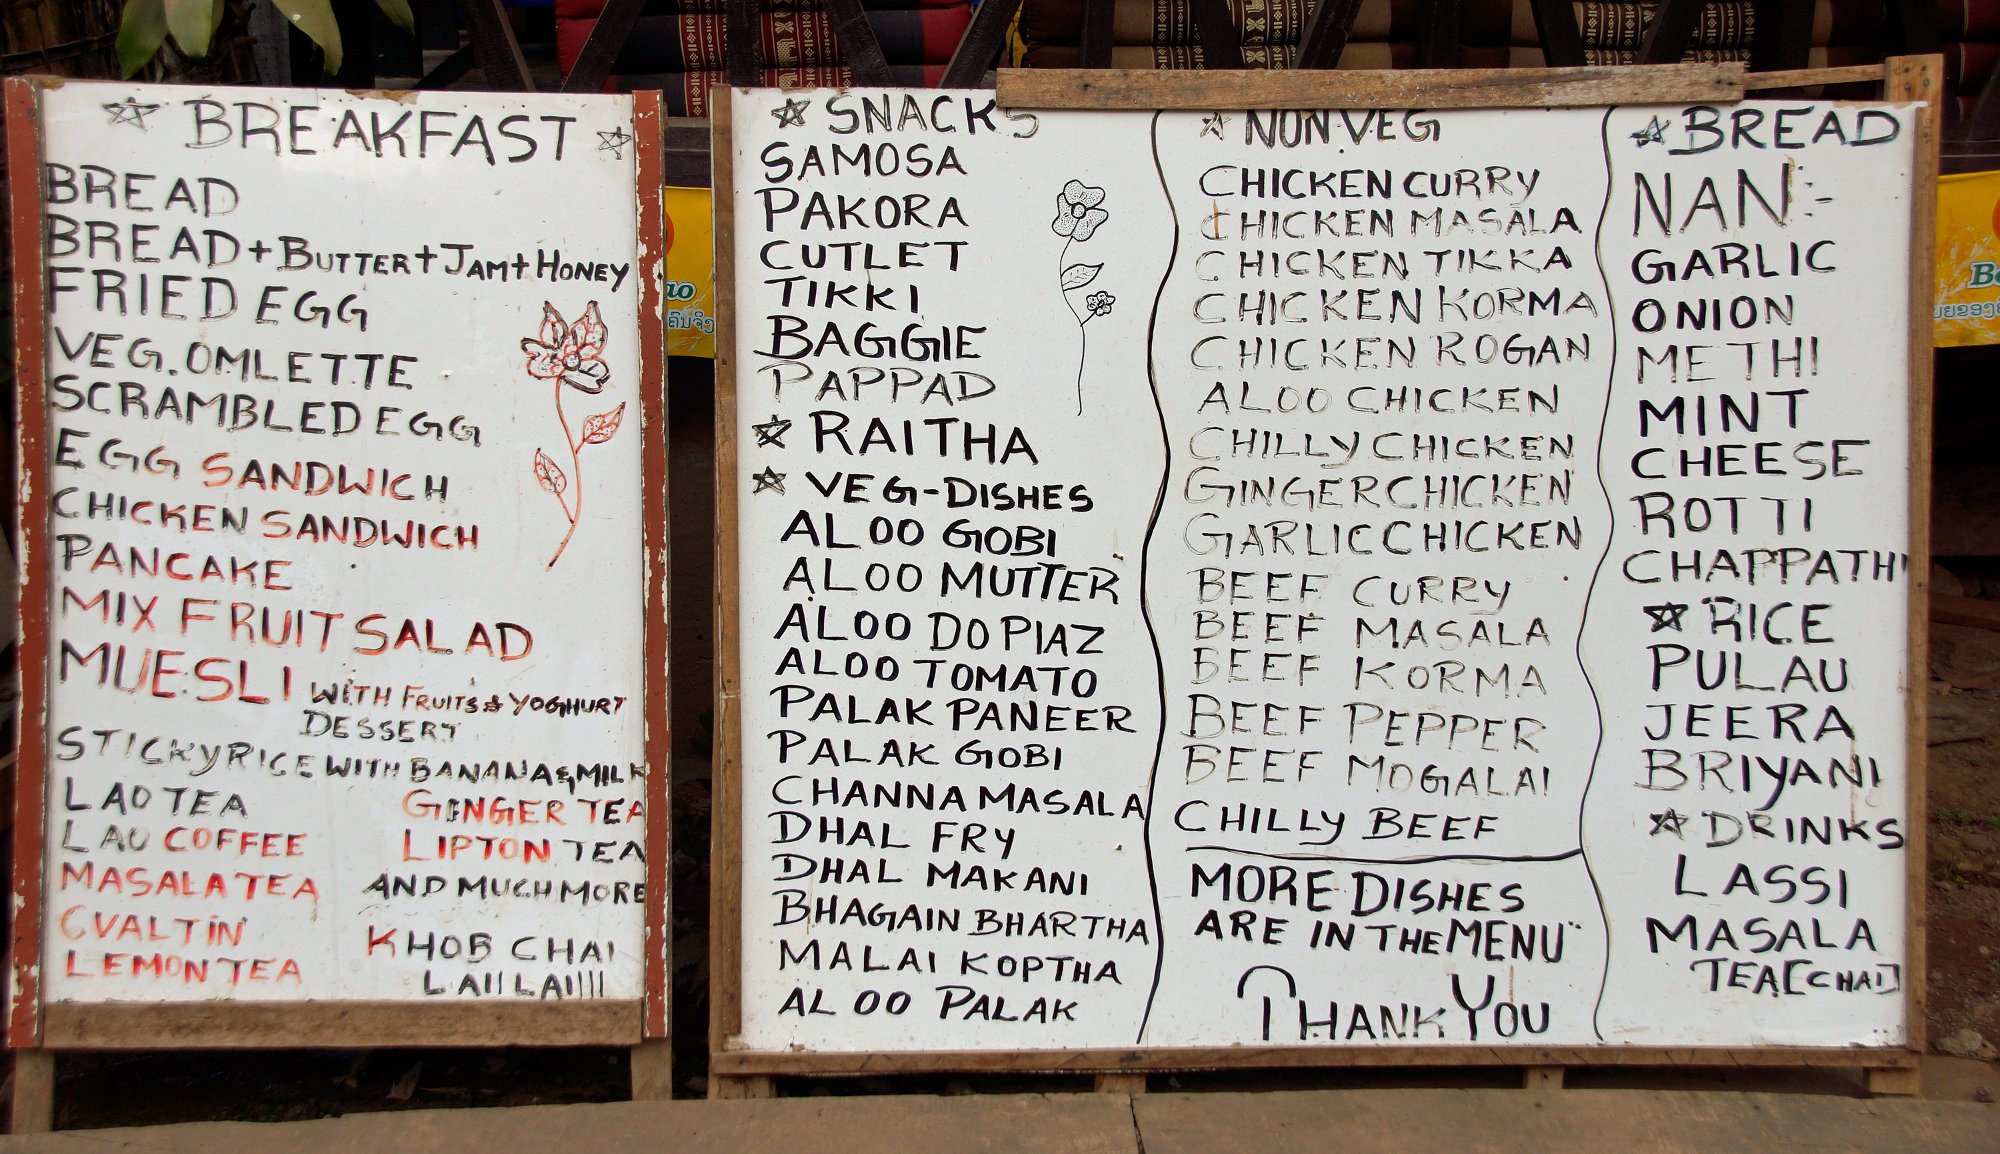 BREAKFAST
BREAD
BREAD + BUTTER + JAM + HONEY
FRIED EGG
VEG. OMLETTE
SCRAMBLED EGG
EGG SANDWICH
CHICKEN SANDWICH
PANCAKE
MIX FRUIT SALAD
MUESLI WITH FRUITS & YOGHURT
DESSERT
STICKYRICE WITH BANANA & MILK
LAO TEA
LAO COFFEE
MASALA TEA
OVALTIN
LEMON TEA
GINGER TEA
LIPTON TEA
AND MUCH MORE
KHOB CHAI
LAI!LAI!!!!
SNACKS
SAMOSA
PAKORA
CUTLET
TIKKI
BAGGIE
PAPPAD
RAITHA
VEG-DISHES
ALOO GOBI
ALOO MUTTER
ALOO DOPIAZ
ALOO TOMATO
PALAK PANEER
PALAK GOBI
CHANNA MASALA
DHAL FRY
DHAL MAKANI
BHAGAIN BHARTHA
MALAI KOPTHA
ALOO PALAK
NON VEG
CHICKEN CURRY
CHICKEN MASALA
CHICKEN TIKKA
CHICKEN KORMA
CHICKEN ROGAN
ALOO CHICKEN
CHILLY CHICKEN
GINGER CHICKEN
GARLIC CHICKEN
BEEF CURRY
BEEF MASALA
BEEF KORMA
BEEF PEPPER
BEEF MOGALAI
CHILLY BEEF
MORE DISHES
ARE IN THE MENU
THANK YOU
BREAD
NAN:-
GARLIC
ONION
METHI
MINT
CHEESE
ROTTI
CHAPPATHI
RICE
PULAU
JEERA
BRIYANI
DRINKS
LASSI
MASALA
TEA [CHAI]